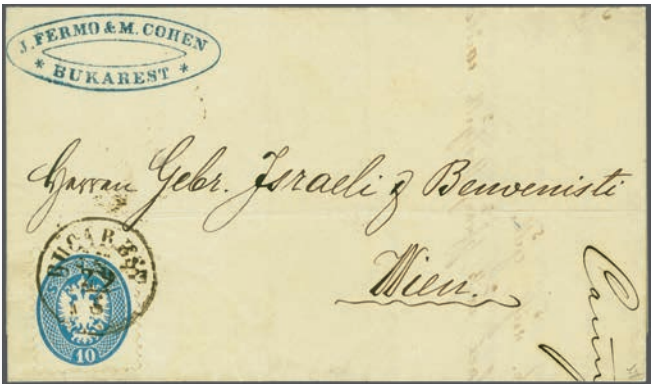 J. FERMO & M. COHEN
* BUKAREST *
Herren Gebr. Israeli & Benvenisti
Wien.
BUCAREST
10